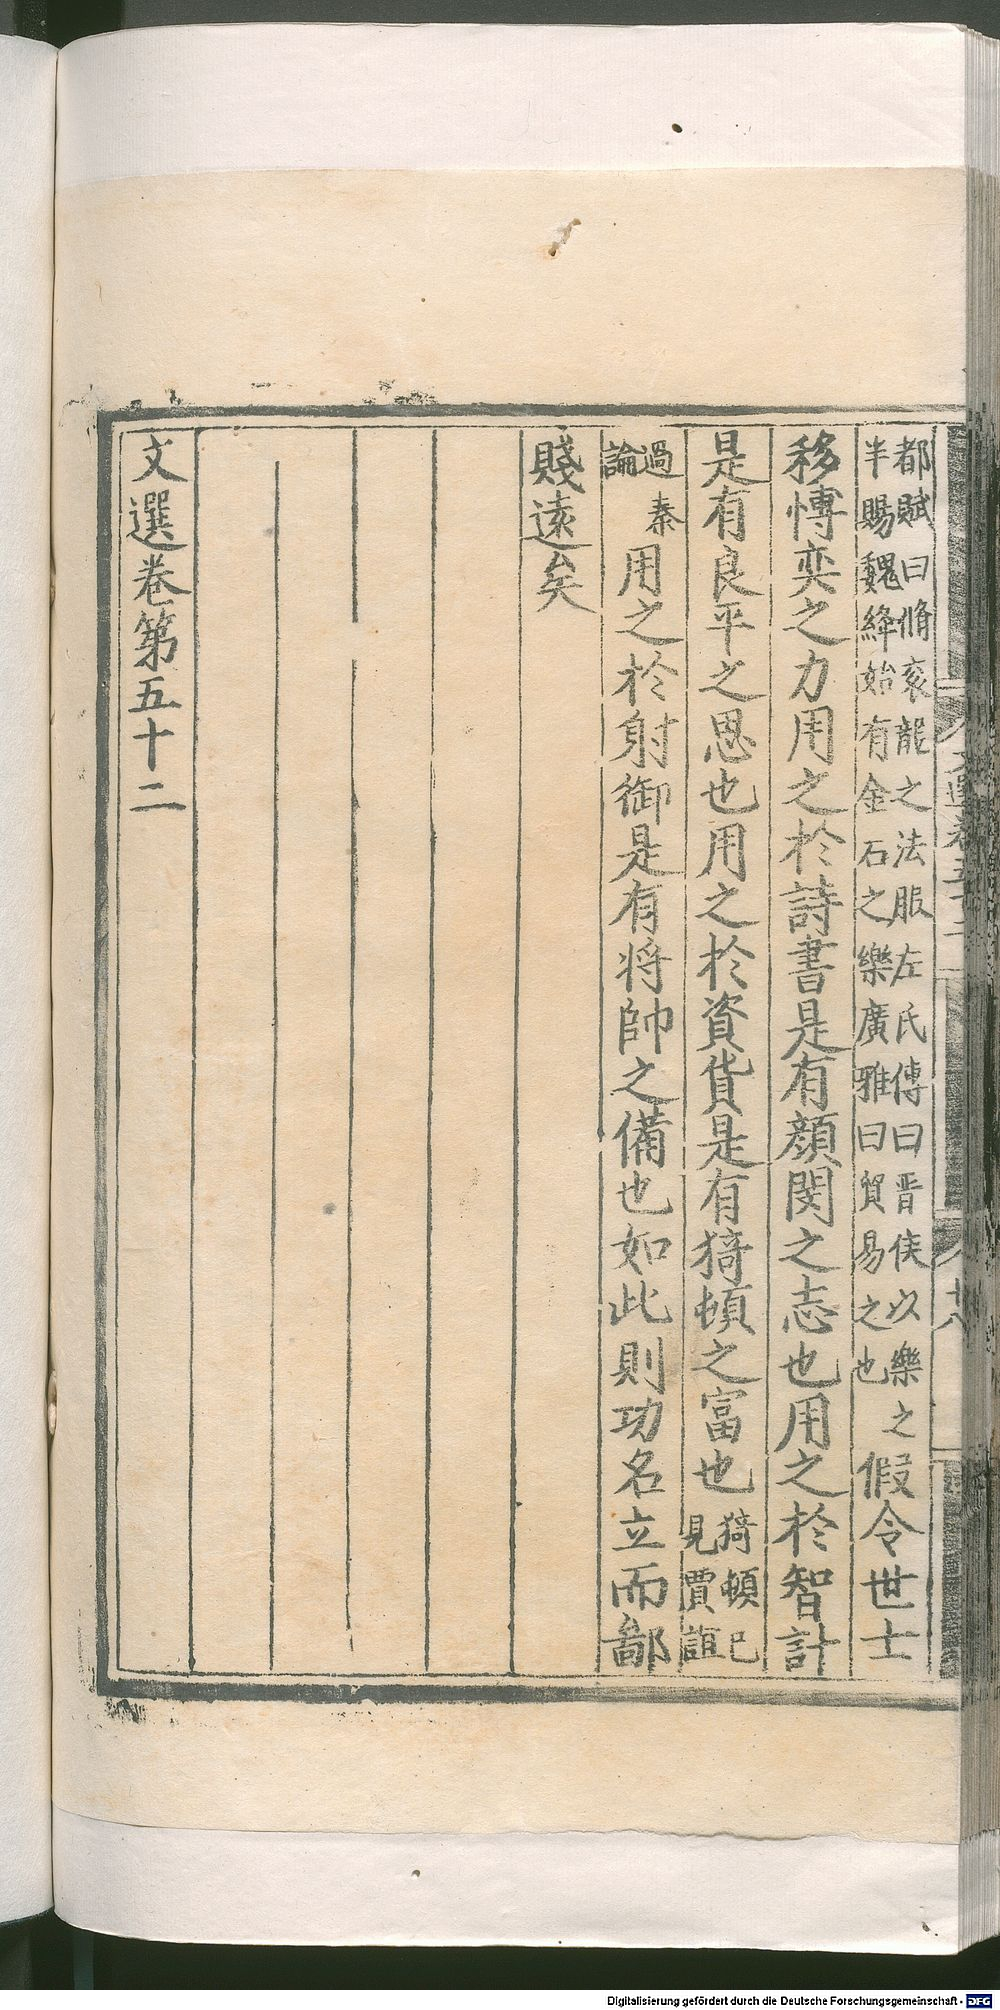 都賦曰脩衮龍之法服左氏傳曰晋侯以樂之
半賜魏絳始有金石之樂廣雅曰貿易之也
假令世士
移愽奕之力用之於詩書是有顔閔之志也用之於智計
是有良平之思也用之於資貨是有猗頓之富也
猗頓已
見賈誼
過秦
論
用之於射御是有将帥之備也如此則功名立而鄙
賤遠矣
文選卷第五十二
Digitalisierung gefördert durch die Deutsche Forschungsgemeinschaft - DFG